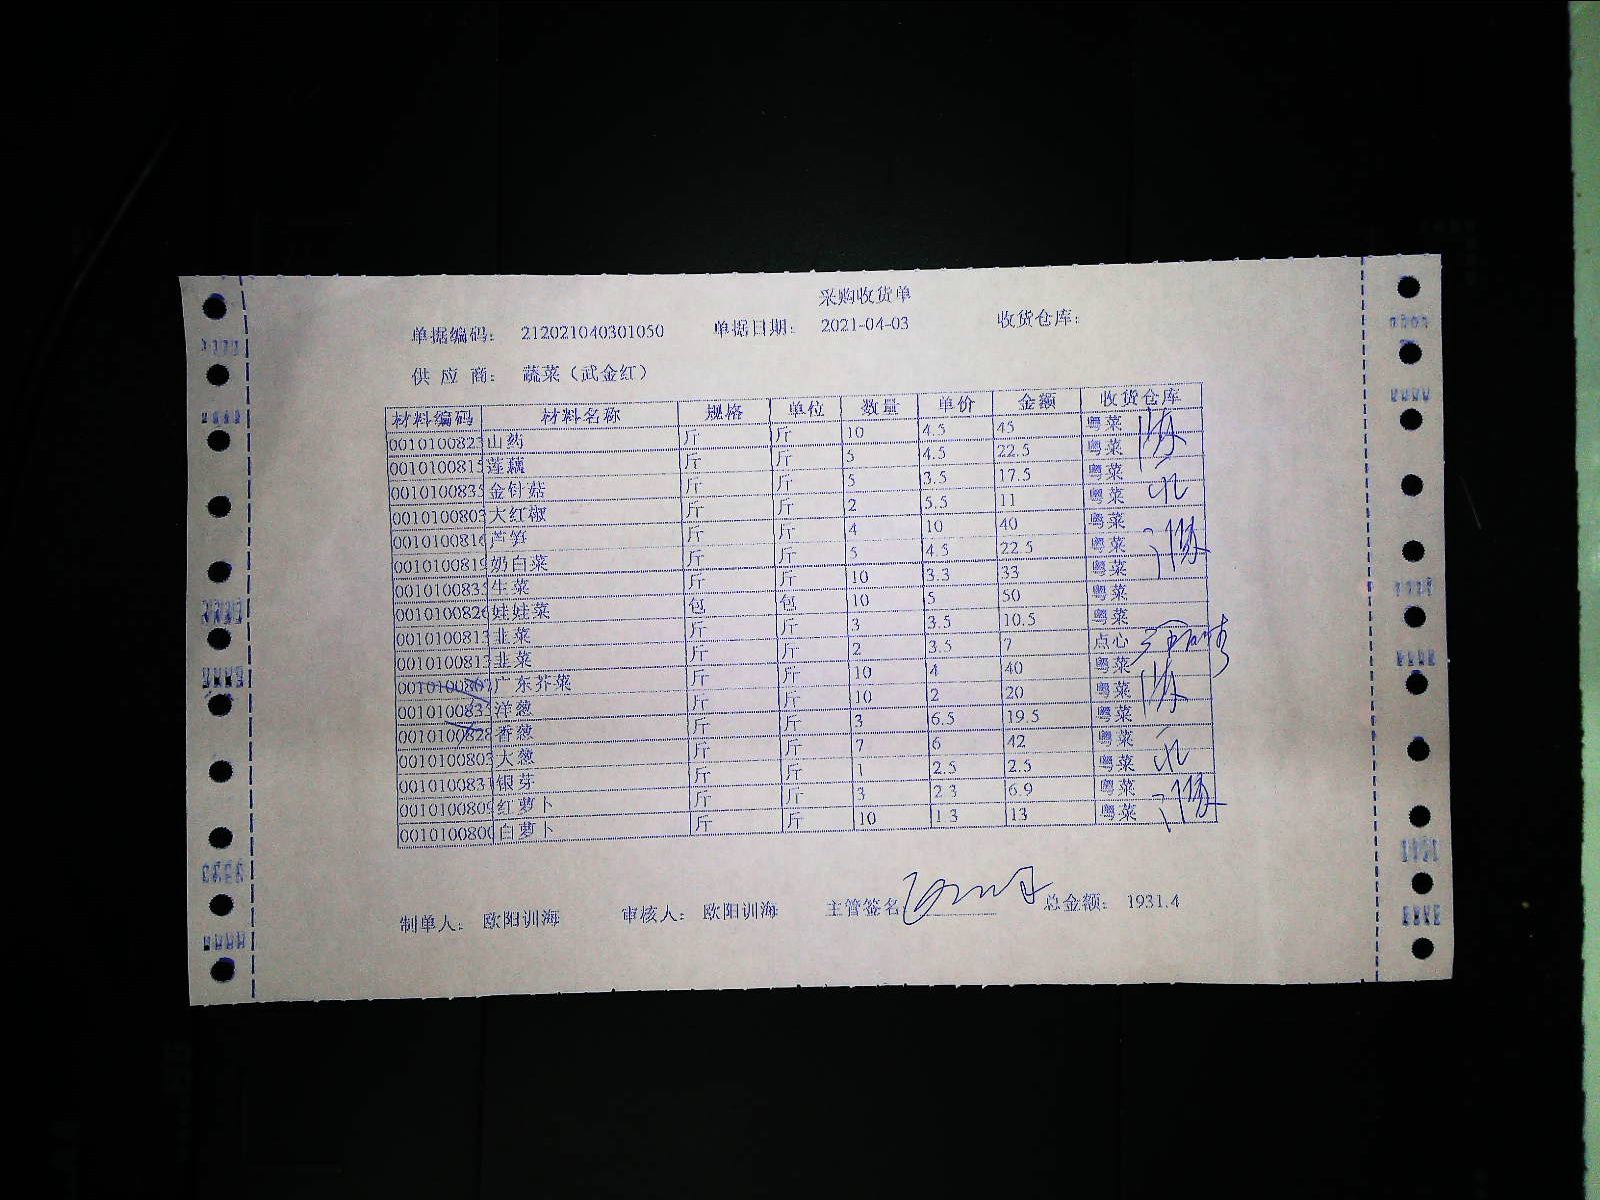 采购收货单
单据编码: 212021040301050 单据日期: 2021-04-03 收货仓库:
供 应 商: 蔬菜(武金红)
材料编码 材料名称 规格 单位 数量 单价 金额 收货仓库
0010100823 山药 斤 斤 10 4.5 45 粤菜
0010100815 莲藕 斤 斤 5 4.5 22.5 粤菜
0010100835 金针菇 斤 斤 5 3.5 17.5 粤菜
0010100803 大红椒 斤 斤 2 5.5 11 粤菜
0010100816 芦笋 斤 斤 4 10 40 粤菜
0010100819 奶白菜 斤 斤 5 4.5 22.5 粤菜
0010100835 生菜 斤 斤 10 3.3 33 粤菜
0010100826 娃娃菜 包 包 10 5 50 粤菜
0010100813 韭菜 斤 斤 3 3.5 10.5 粤菜
0010100813 韭菜 斤 斤 2 3.5 7 点心
0010100807 广东芥菜 斤 斤 10 4 40 粤菜
0010100835 洋葱 斤 斤 10 2 20 粤菜
0010100828 香葱 斤 斤 3 6.5 19.5 粤菜
0010100803 大葱 斤 斤 7 6 42 粤菜
0010100831 银芽 斤 斤 1 2.5 2.5 粤菜
0010100809 红萝卜 斤 斤 3 2.3 6.9 粤菜
0010100800 白萝卜 斤 斤 10 1.3 13 粤菜
制单人: 欧阳训海 审核人: 欧阳训海 主管签名 总金额: 1931.4